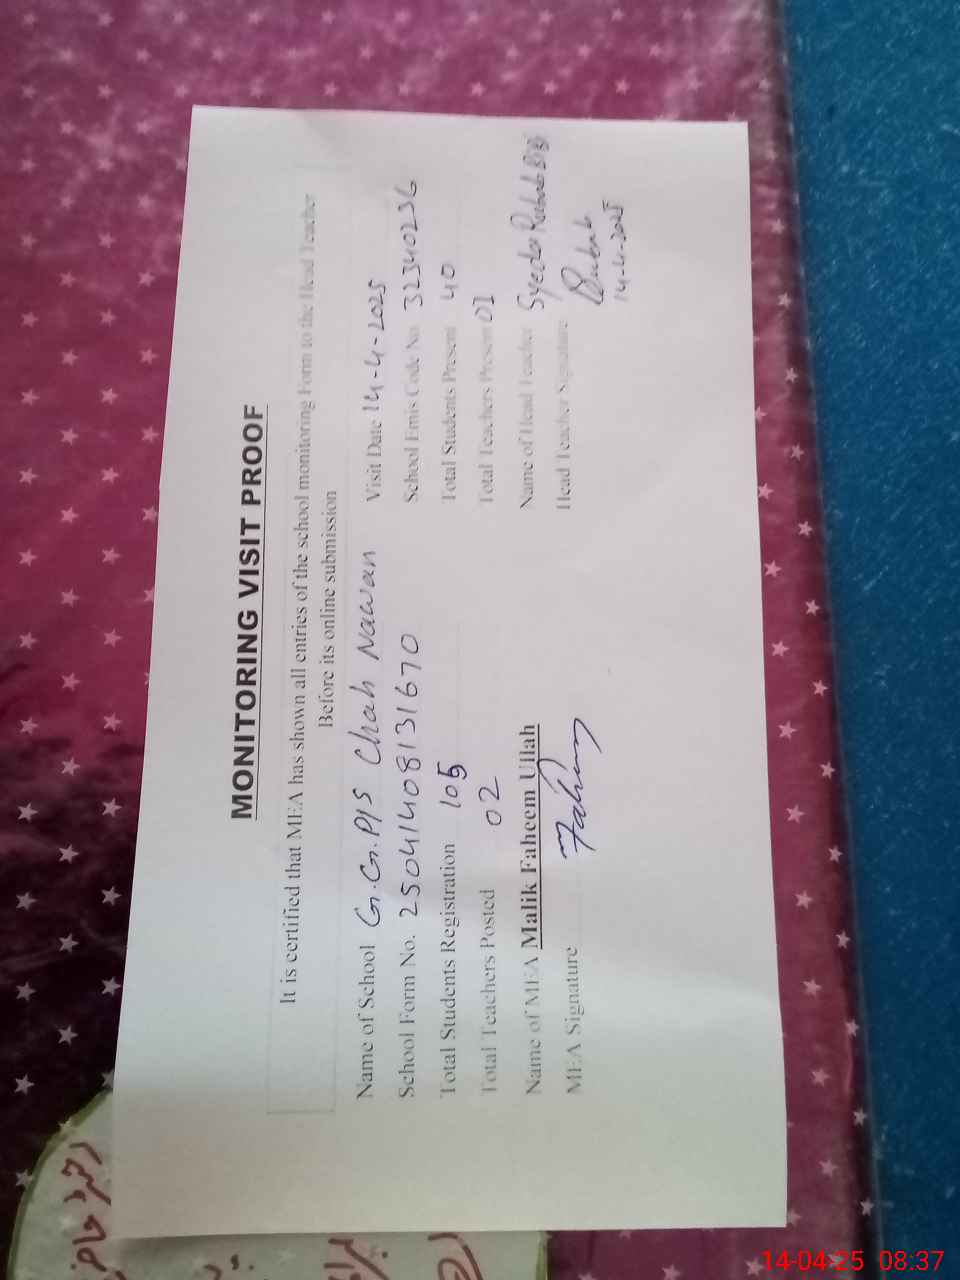 MONITORING VISIT PROOF
It is certified that MEA has shown all entries of the school monitoring Form to the Head Teacher
Before its online submission
Name of School G.G.P/S Chah Nawan Visit Date 14-4-2025
School Form No. 25041408131670 School Emis Code No. 32340236
Total Students Registration 105 Total Students Present 40
Total Teachers Posted 02 Total Teachers Present 01
Name of MEA Malik Faheem Ullah Name of Head Teacher Syeda Rubab BiBi
MEA Signature Faheem Head Teacher Signature Rubab
14-4-2025
14-04-25 08:37